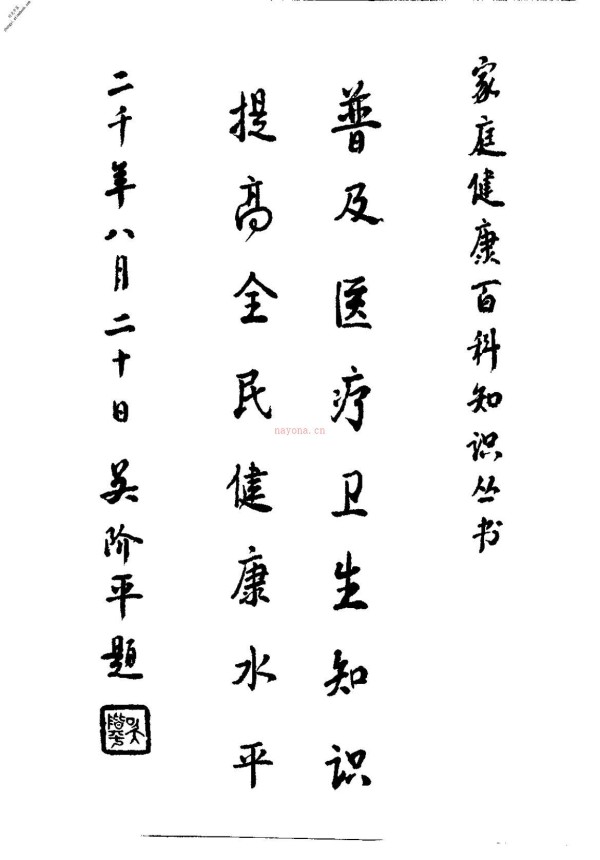 家庭健康百科知识丛书
普及医疗卫生知识
提高全民健康水平
二千年八月二十日 吴阶平题
nayona.cn